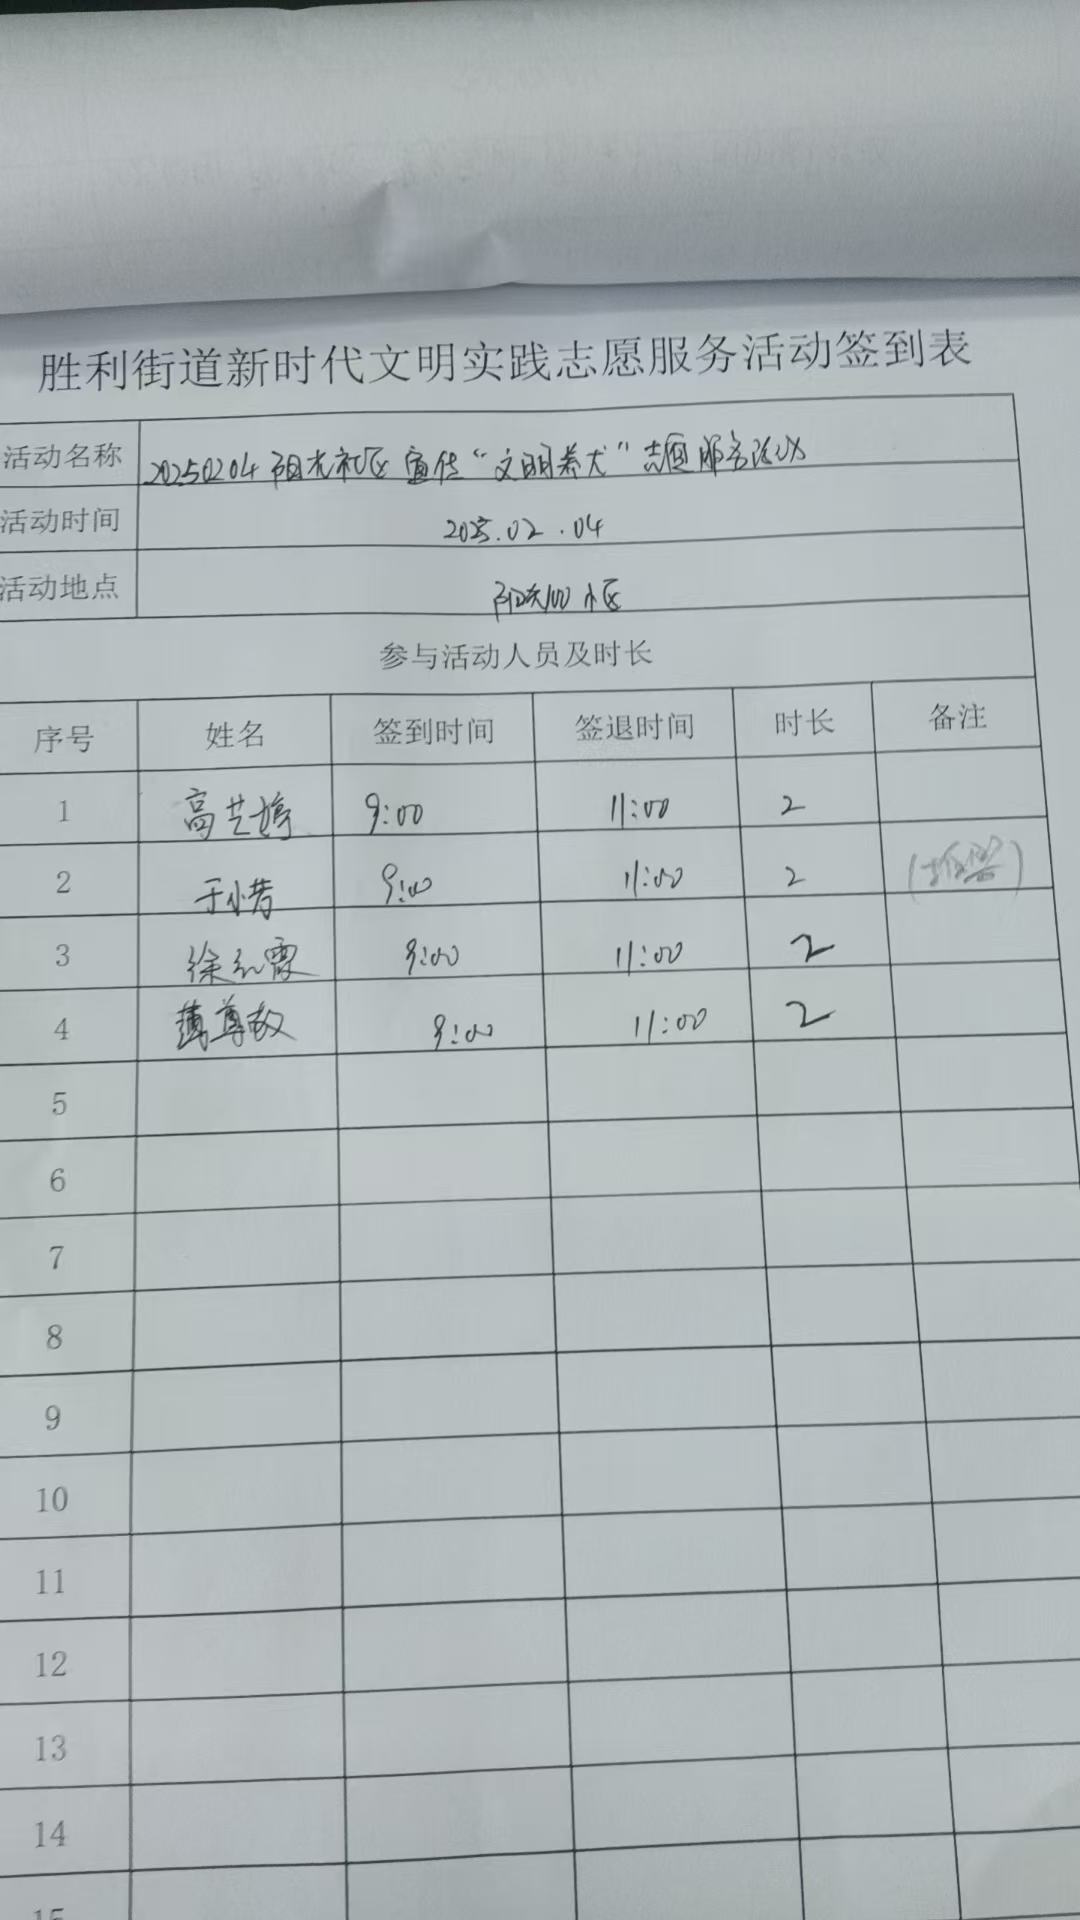 胜利街道新时代文明实践志愿服务活动签到表
活动名称 20250204阳光社区宣传“文明养犬”志愿服务活动
活动时间 2025.02.04
活动地点 阳光100小区
参与活动人员及时长
序号 姓名 签到时间 签退时间 时长 备注
1 高芝婷 9:00 11:00 2
2 于小芳 9:00 11:00 2
3 徐红霞 9:00 11:00 2
4 薄尊敬 9:00 11:00 2
5
6
7
8
9
10
11
12
13
14
15